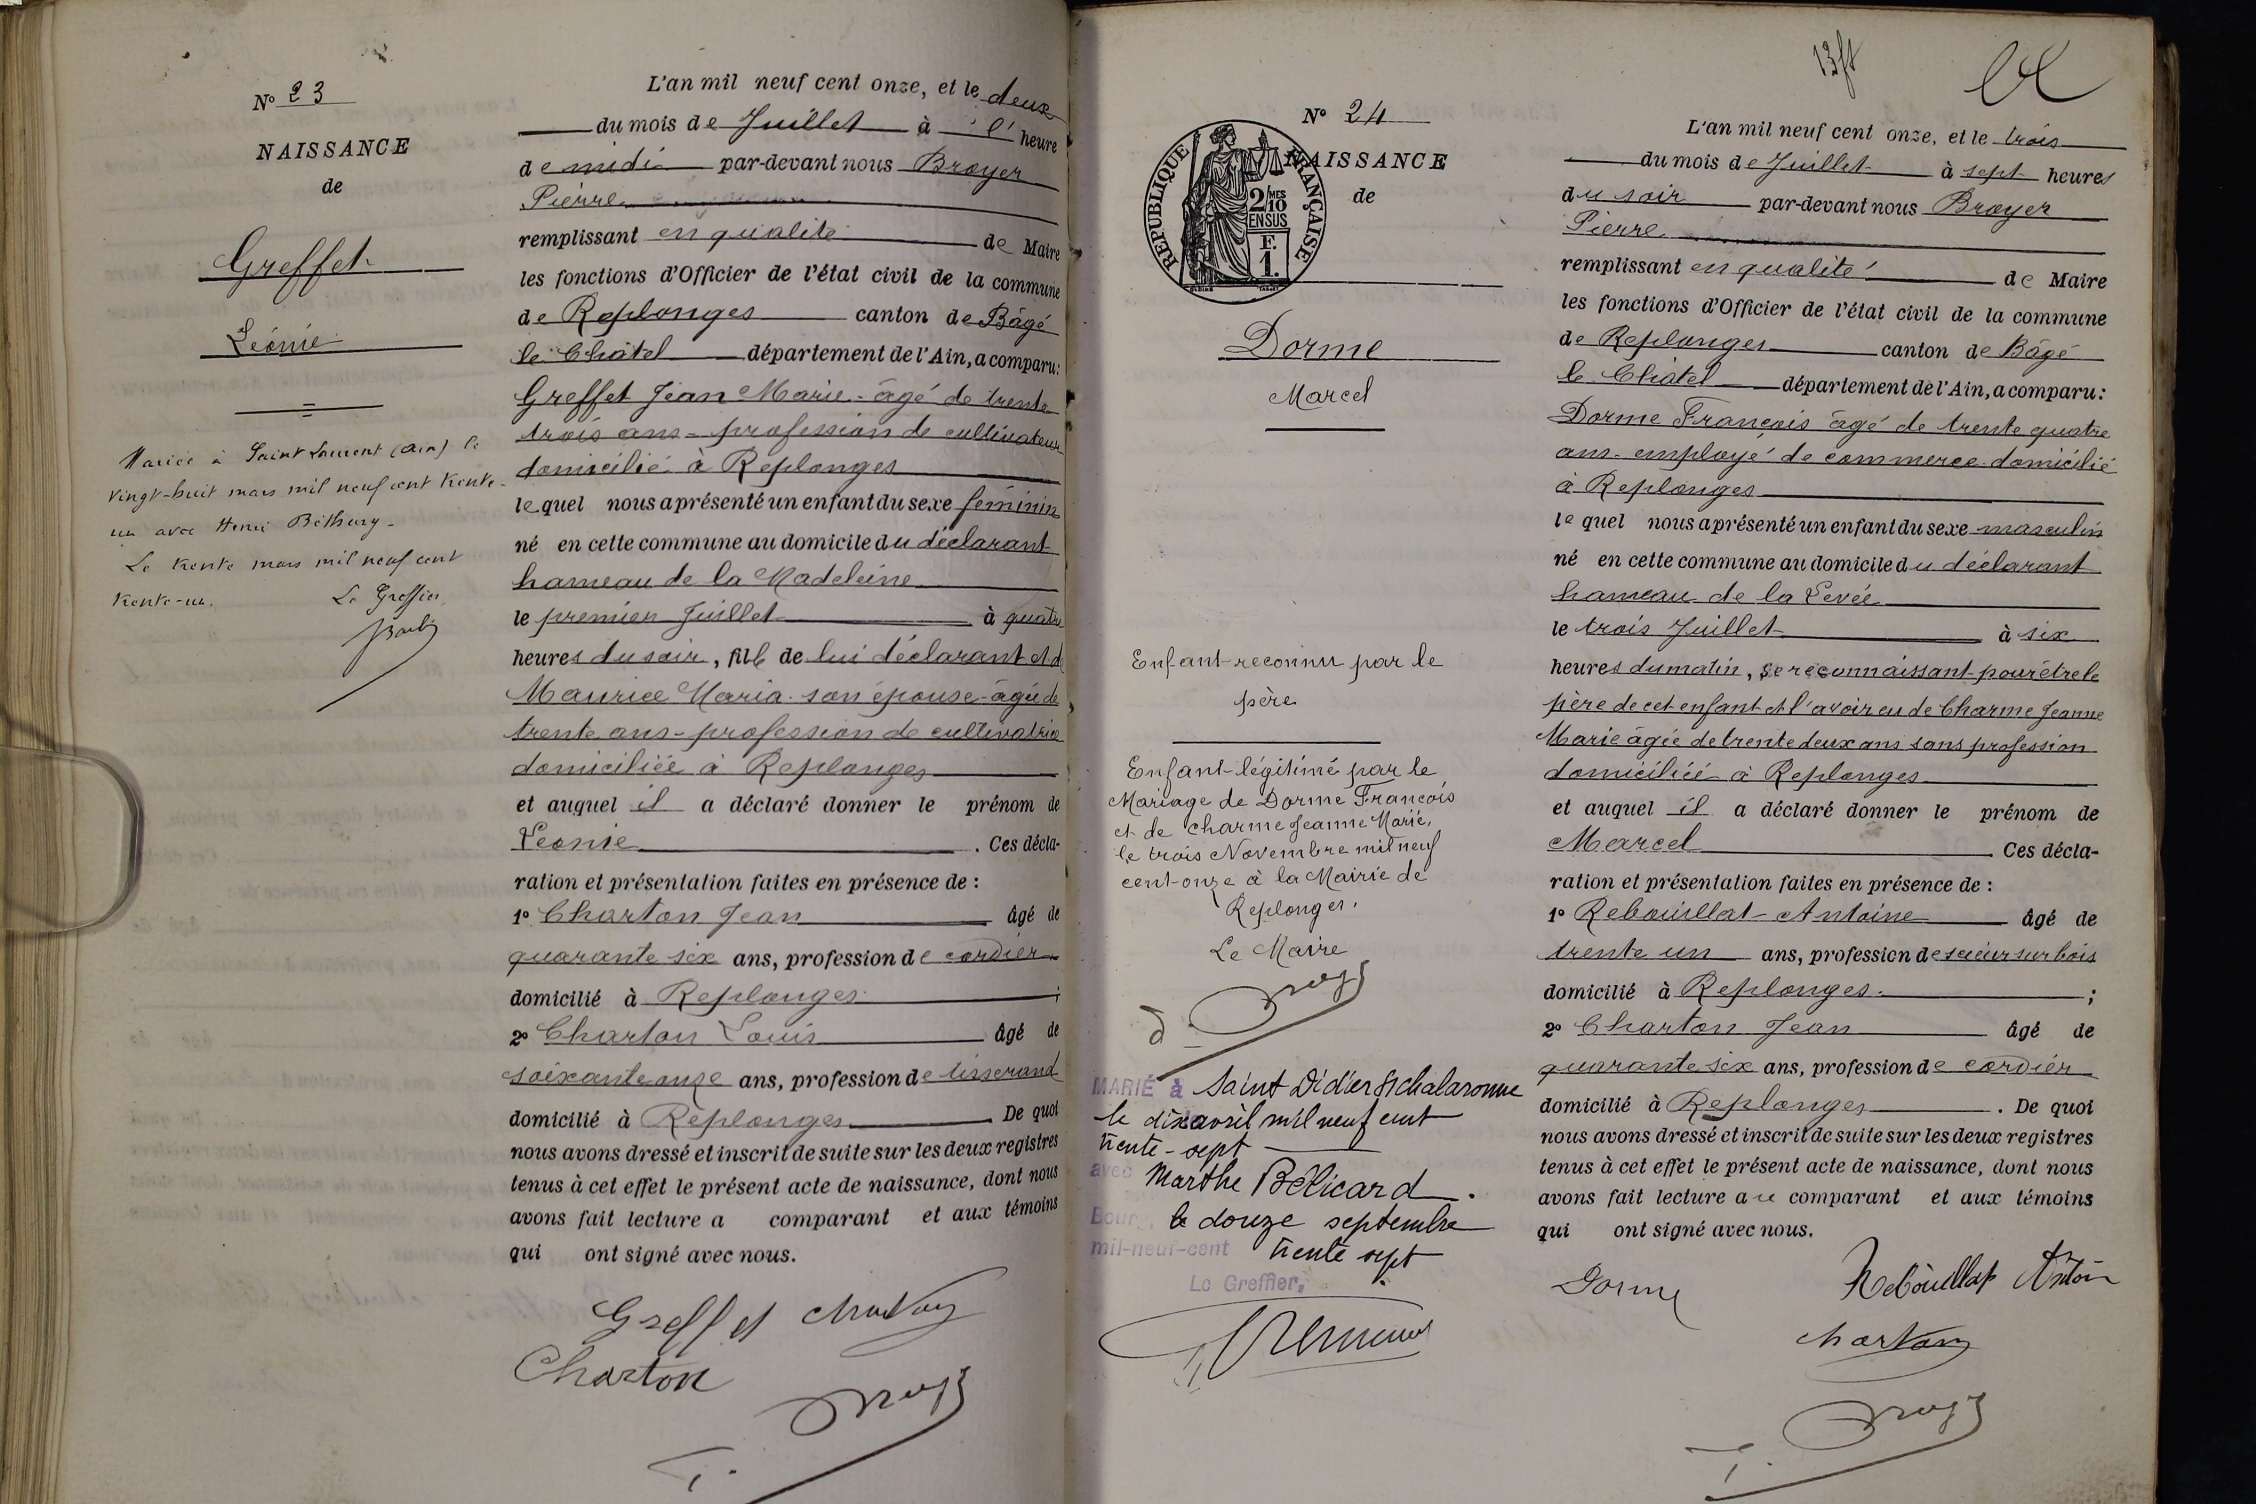 N° 23
NAISSANCE
de
Greffet
Léonie
Mariée à Saint Laurent (Ain) le
vingt-huit mars mil neuf cent trente-
un avec Henri Béthury-
Le trente mars mil neuf cent
trente-un. Le Greffier
L'an mil neuf cent onze, et le deux
du mois de Juillet à l' heure
de midi par-devant nous Broyer
Pierre
remplissant en qualité de Maire
les fonctions d'Officier de l'état civil de la commune
de Replonges canton de Bâgé
le Châtel département de l'Ain, a comparu:
Greffet Jean Marie - âgé de trente
trois ans - profession de cultivateur
domicilié à Replonges
lequel nous a présenté un enfant du sexe féminin
né en cette commune au domicile du déclarant
hameau de la Madeleine
le premier Juillet à quatre
heures du soir, fille de lui déclarant et d
Maurice Maria son épouse - âgée de
trente ans - profession de cultivatrice
domiciliée à Replonges
et auquel il a déclaré donner le prénom de
Léonie. Ces décla-
ration et présentation faites en présence de :
1° Charton Jean âgé de
quarante six ans, profession de cordier
domicilié à Replonges ;
2° Charton Louis âgé de
soixante onze ans, profession de tisserand
domicilié à Replonges. De quoi
nous avons dressé et inscrit de suite sur les deux registres
tenus à cet effet le présent acte de naissance, dont nous
avons fait lecture a comparant et aux témoins
qui ont signé avec nous.
Greffet Charton
Charton
N° 24
NAISSANCE
de
REPUBLIQUE FRANÇAISE
2/10 MES
EN SUS
F.
1.
Dorme
Marcel
Enfant reconnu par le
père
Enfant légitimé par le
Mariage de Dorme François
et de Charme Jeanne Marie,
le trois Novembre mil neuf
cent onze à la Mairie de
Replonges.
Le Maire
MARIÉ à Saint Didier s/Chalaronne
le dix avril mil neuf cent
trente-sept
avec Marthe Bélicard.
Bourg, le douze septembre
mil-neuf-cent trente sept
Le Greffier,
L'an mil neuf cent onze, et le trois
du mois de Juillet à sept heures
du soir par-devant nous Broyer
Pierre
remplissant en qualité de Maire
les fonctions d'Officier de l'état civil de la commune
de Replonges canton de Bâgé
le Châtel département de l'Ain, a comparu:
Dorme François âgé de trente quatre
ans - employé de commerce - domicilié
à Replonges
lequel nous a présenté un enfant du sexe masculin
né en cette commune au domicile du déclarant
hameau de la Levée
le trois Juillet à six
heures du matin, se reconnaissant pour être le
père de cet enfant et l'avoir eu de Charme Jeanne
Marie âgée de trente deux ans sans profession
domiciliée à Replonges
et auquel il a déclaré donner le prénom de
Marcel Ces décla-
ration et présentation faites en présence de :
1° Rebouillat Antoine âgé de
trente un ans, profession de scieur sur bois
domicilié à Replonges. ;
2° Charton Jean âgé de
quarante six ans, profession de cordier
domicilié à Replonges. De quoi
nous avons dressé et inscrit de suite sur les deux registres
tenus à cet effet le présent acte de naissance, dont nous
avons fait lecture au comparant et aux témoins
qui ont signé avec nous.
Dorme Rebouillat Antoin
Charton